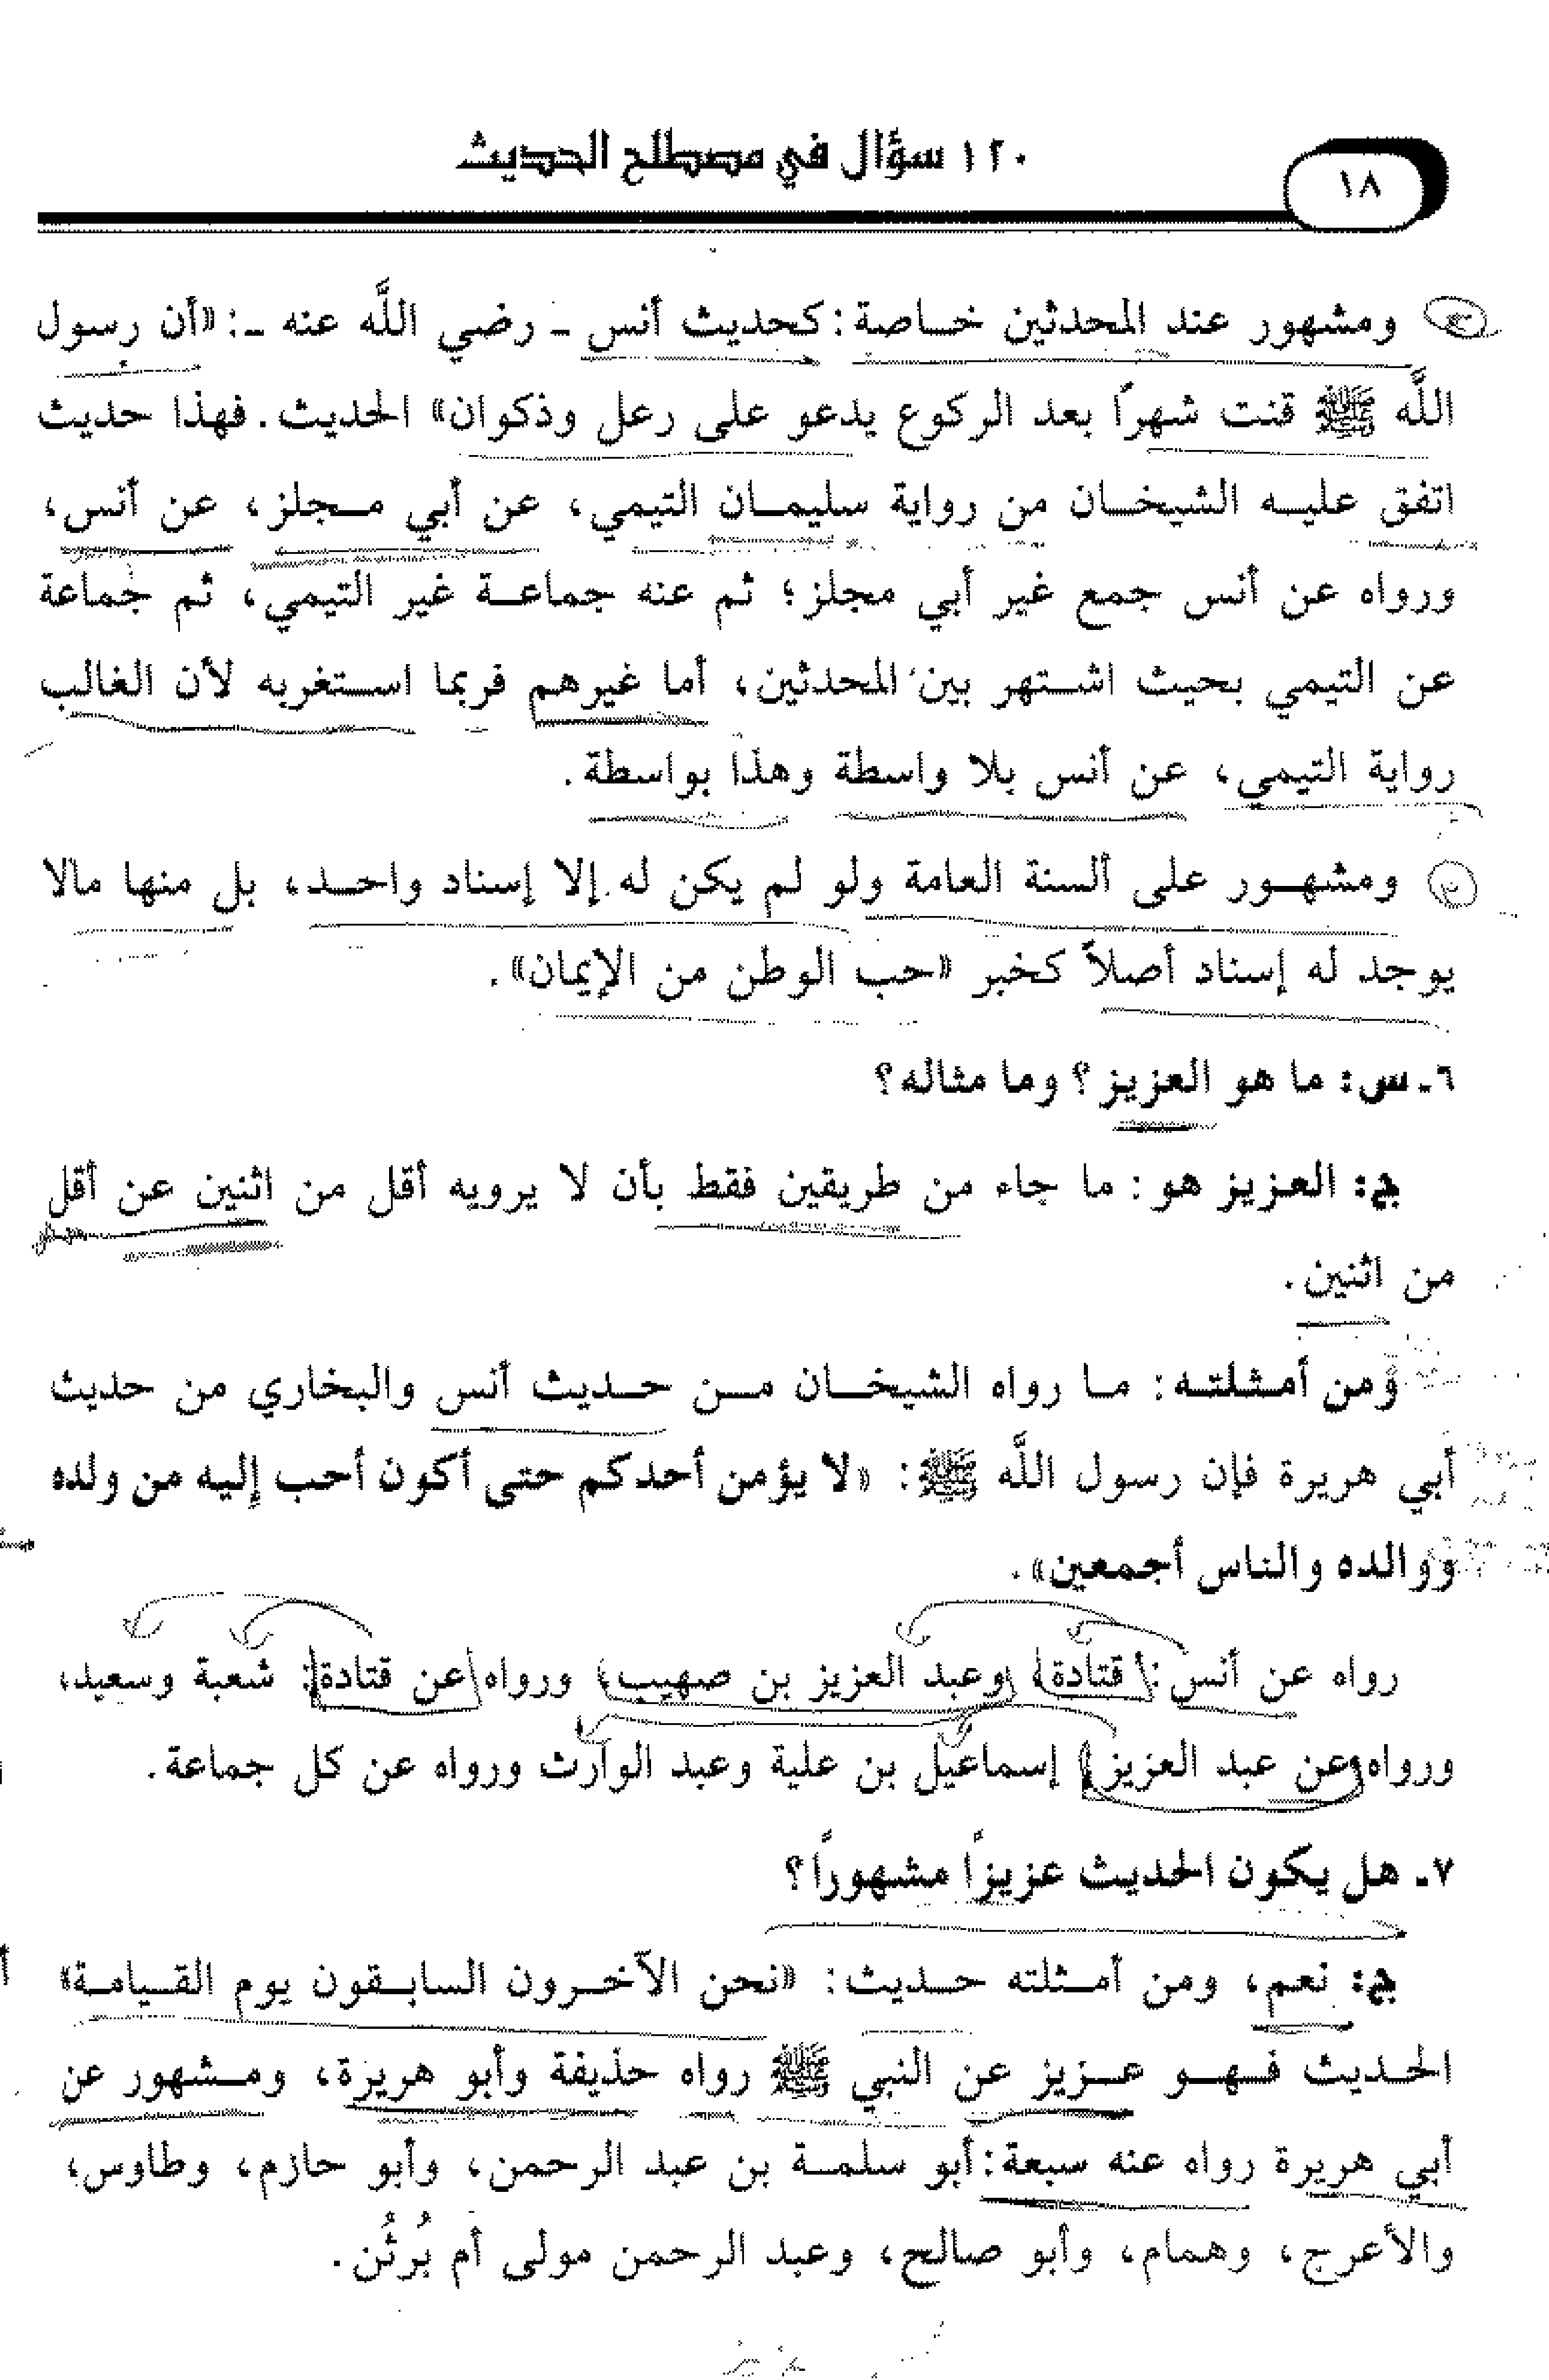 ١٨
١٢٠ سؤال في مصطلح الحديث
ومشهور عند المحدثين خاصة: كحديث أنس - رضي اللَّه عنه -: «أن رسول
اللَّه ﷺ قنت شهرًا بعد الركوع يدعو على رعل وذكوان» الحديث. فهذا حديث
اتفق عليه الشيخان من رواية سليمان التيمي، عن أبي مجلز، عن أنس،
ورواه عن أنس جمع غير أبي مجلز؛ ثم عنه جماعة غير التيمي، ثم جماعة
عن التيمي بحيث اشتهر بين المحدثين، أما غيرهم فربما استغربه لأن الغالب
رواية التيمي، عن أنس بلا واسطة وهذا بواسطة.
٢ ومشهور على ألسنة العامة ولو لم يكن له إلا إسناد واحد، بل منها مالا
يوجد له إسناد أصلاً كخبر «حب الوطن من الإيمان».
٦ـ س: ما هو العزيز؟ وما مثاله؟
ج: العزيز هو: ما جاء من طريقين فقط بأن لا يرويه أقل من اثنين عن أقل
من اثنين.
ومن أمثلته: ما رواه الشيخان من حديث أنس والبخاري من حديث
أبي هريرة فإن رسول اللَّه ﷺ: «لا يؤمن أحدكم حتى أكون أحب إليه من ولده
ووالده والناس أجمعين».
رواه عن أنس: قتادة، وعبد العزيز بن صهيب، ورواه عن قتادة: شعبة وسعيد،
ورواه عن عبد العزيز إسماعيل بن علية وعبد الوارث ورواه عن كل جماعة.
٧ـ هل يكون الحديث عزيزًا مشهورًا؟
ج: نعم، ومن أمثلته حديث: «نحن الآخرون السابقون يوم القيامة»
الحديث فهو عزيز عن النبي ﷺ رواه حذيفة وأبو هريرة، ومشهور عن
أبي هريرة رواه عنه سبعة: أبو سلمة بن عبد الرحمن، وأبو حازم، وطاوس،
والأعرج، وهمام، وأبو صالح، وعبد الرحمن مولى أم بُرثُن.